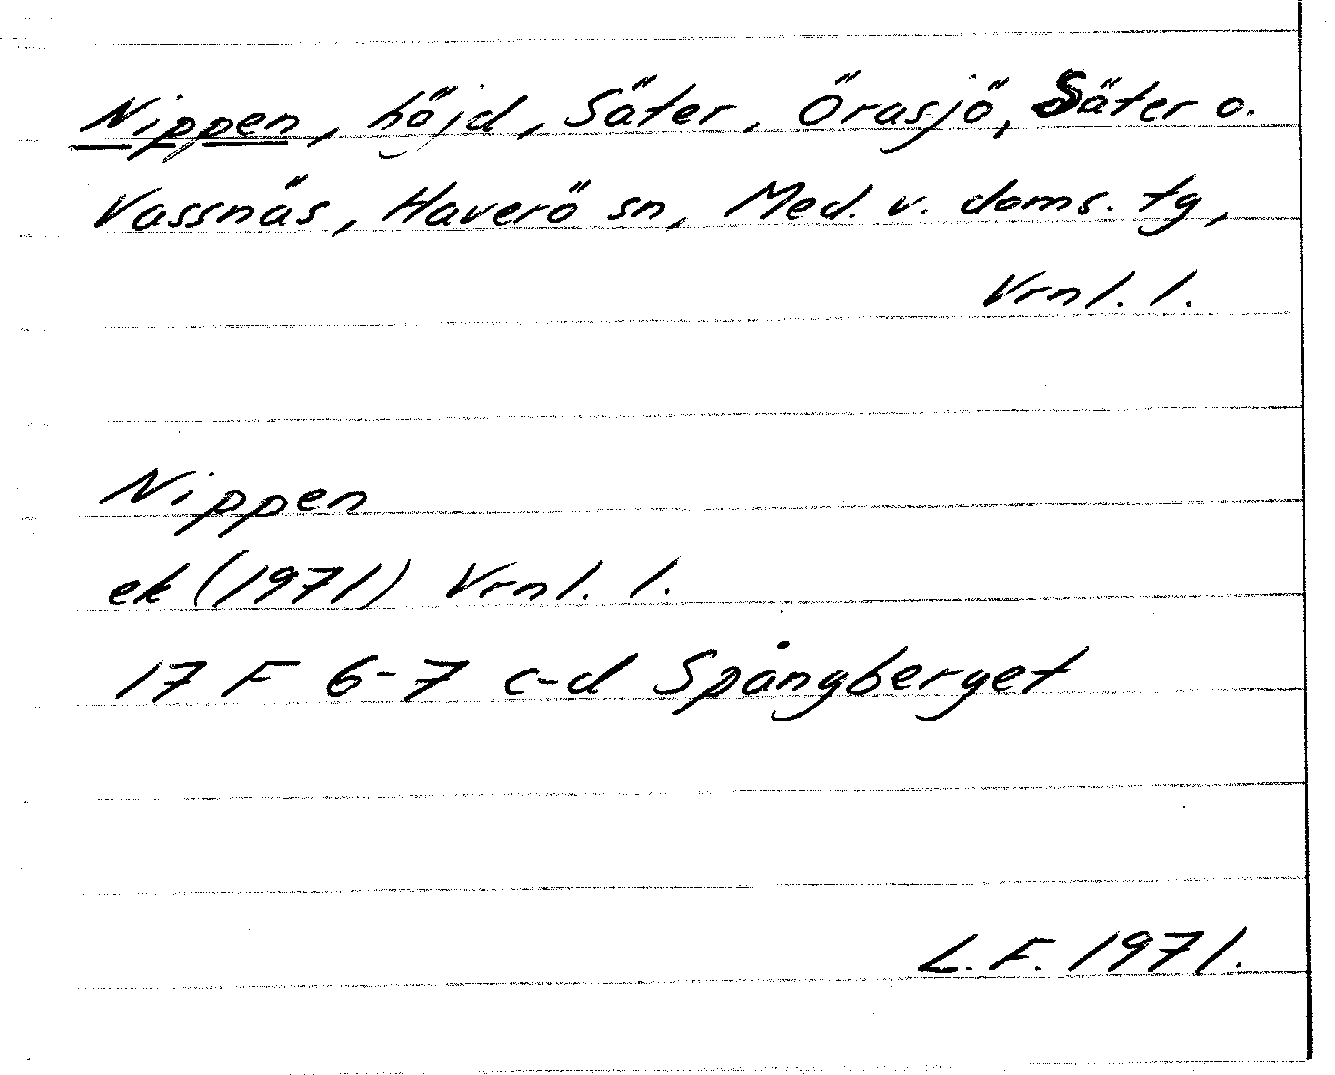 Nippen, höjd, Säter, Örasjö, Säter o.
Vassnäs, Haverö sn, Med. v. doms. tg,
Vrnl. l.
Nippen
ek (1971) Vrnl. l.
17 F 6-7 c-d Spångberget
L. F. 1971.